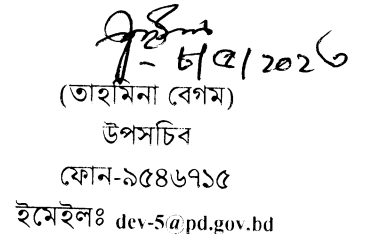 (তাহমিনা বেগম)
উপসচিব
ফোন-৯৫৪৬৭১৫
ইমেইলঃ dev-5@pd.gov.bd